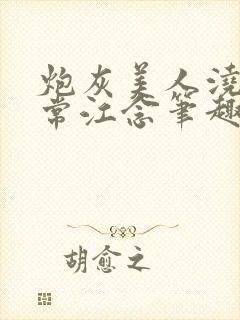 炮灰美人澆
常江念筆趣
胡愈之